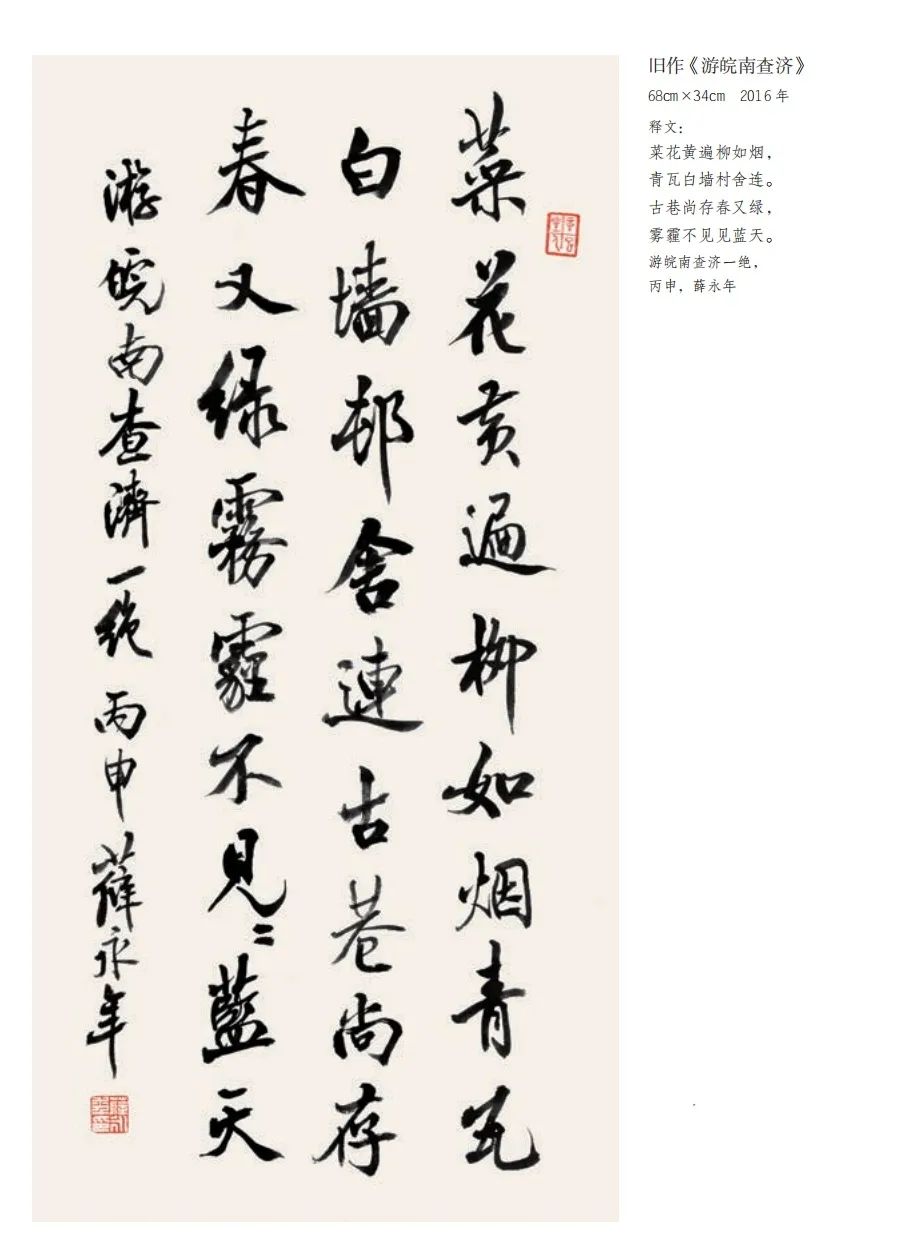 菜花黄遍柳如烟青瓦
白墙邨舍連古巷尚存
春又绿霧霾不見〻藍天
游皖南查濟一绝 丙申 薛永年
旧作《游皖南查济》
68cm×34cm 2016 年
释文：
菜花黄遍柳如烟，
青瓦白墙村舍连。
古巷尚存春又绿，
雾霾不见见蓝天。
游皖南查济一绝，
丙申，薛永年